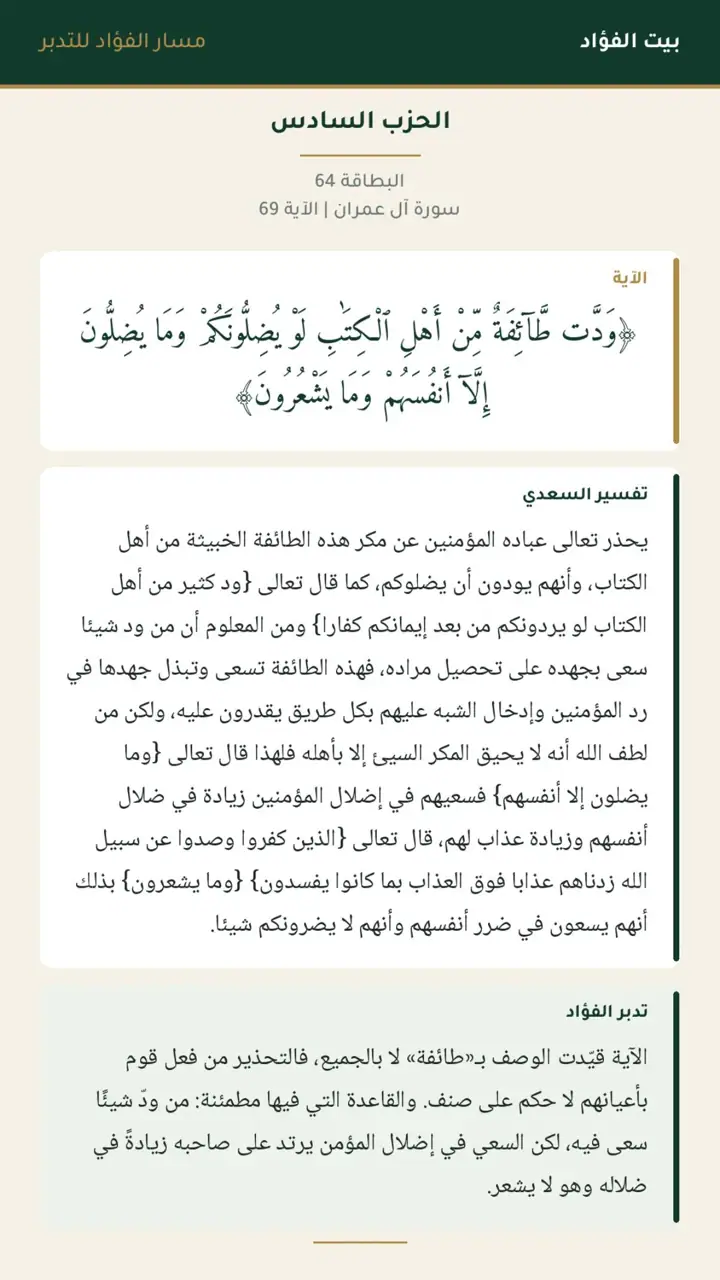 بيت الفؤاد
مسار الفؤاد للتدبر
الحزب السادس
البطاقة 64
سورة آل عمران | الآية 69
الآية
﴿وَدَّت طَّآئِفَةٌ مِّنْ أَهْلِ ٱلْكِتَٰبِ لَوْ يُضِلُّونَكُمْ وَمَا يُضِلُّونَ
إِلَّآ أَنفُسَهُمْ وَمَا يَشْعُرُونَ﴾
تفسير السعدي
يحذر تعالى عباده المؤمنين عن مكر هذه الطائفة الخبيثة من أهل
الكتاب، وأنهم يودون أن يضلوكم، كما قال تعالى {ود كثير من أهل
الكتاب لو يردونكم من بعد إيمانكم كفارا} ومن المعلوم أن من ود شيئا
سعى بجهده على تحصيل مراده، فهذه الطائفة تسعى وتبذل جهدها في
رد المؤمنين وإدخال الشبه عليهم بكل طريق يقدرون عليه، ولكن من
لطف الله أنه لا يحيق المكر السيئ إلا بأهله فلهذا قال تعالى {وما
يضلون إلا أنفسهم} فسعيهم في إضلال المؤمنين زيادة في ضلال
أنفسهم وزيادة عذاب لهم، قال تعالى {الذين كفروا وصدوا عن سبيل
الله زدناهم عذابا فوق العذاب بما كانوا يفسدون} {وما يشعرون} بذلك
أنهم يسعون في ضرر أنفسهم وأنهم لا يضرونكم شيئا.
تدبر الفؤاد
الآية قيّدت الوصف بـ«طائفة» لا بالجميع، فالتحذير من فعل قوم
بأعيانهم لا حكم على صنف. والقاعدة التي فيها مطمئنة: من ودّ شيئًا
سعى فيه، لكن السعي في إضلال المؤمن يرتد على صاحبه زيادةً في
ضلاله وهو لا يشعر.